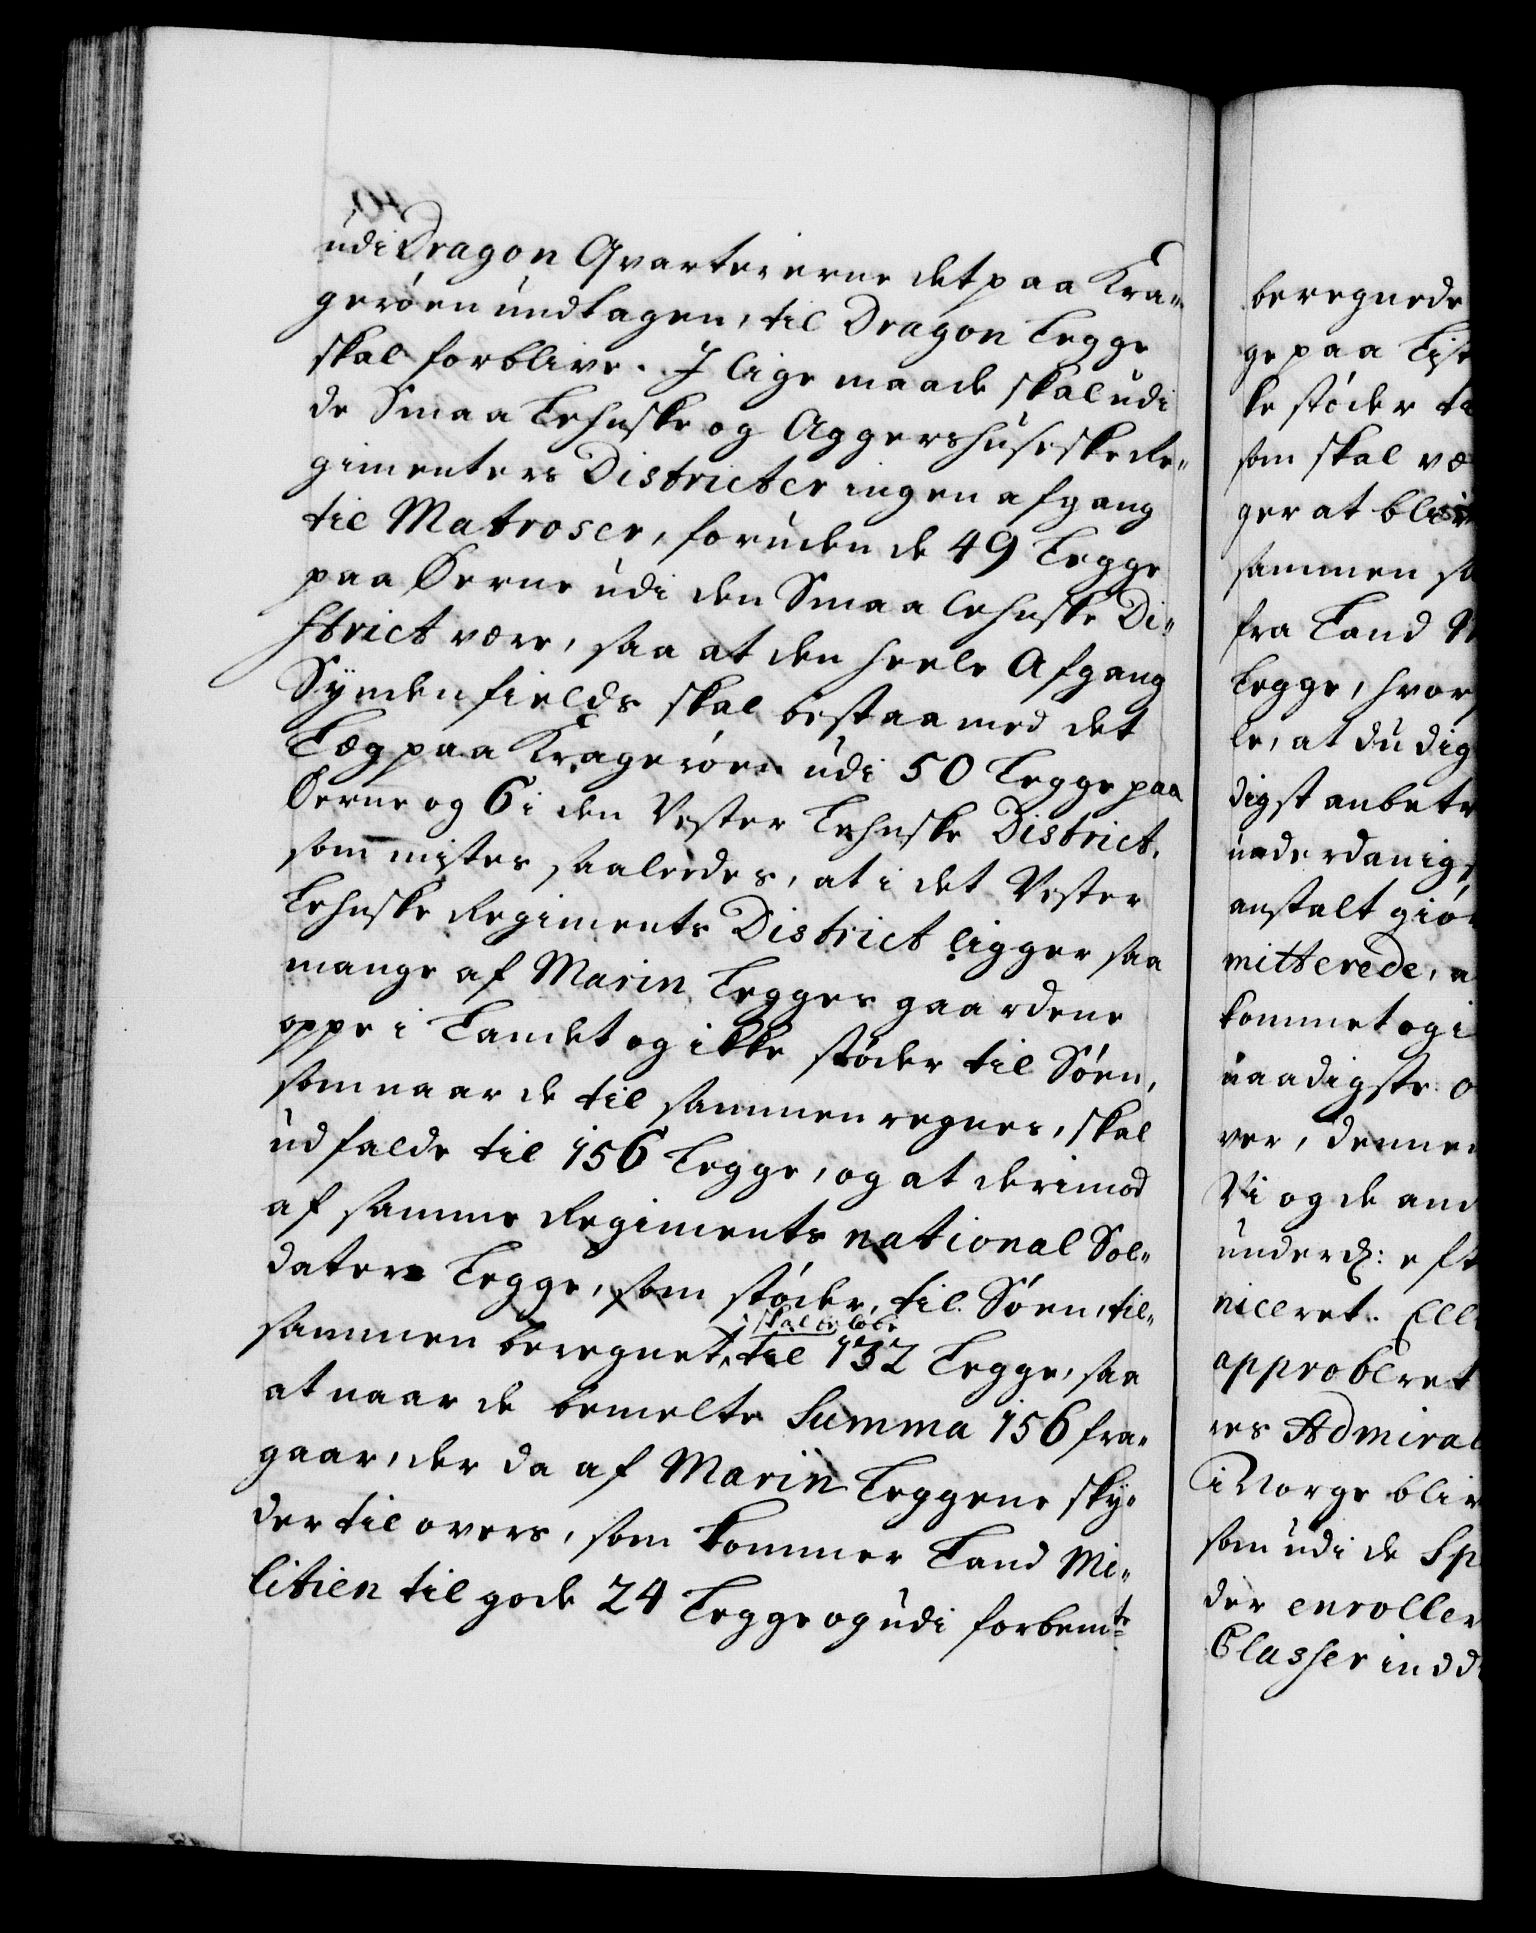 udi Dragon Qvartererne det paa Kra-
gerøen undtagen, til Dragon Legge
skal forblive. I lige maade skal udi
de Smaa Lehnske og Aggershuseske Re-
gimenters Districter ingen afgang
til Matroser, foruden de 49 Legge
paa Øerne udi den Smaa Lehnske Di-
strict være, saa at den heele Afgang
Synden fields skal bestaa med det
Læg paa Kragerøen udi 50 Legge paa
Øerne og 6 i den Vester Lehnske District,
som mistes saaleedes, at i det Vester
Lehnske Regiments District ligger saa
mange af Marin Legges gaardene
oppe i Landet og ikke støder til Søen,
som naar de til sammen regnes, skal
udfalde til 156 Legge, og at derimod
af samme Regiments national Sol-
daters Legge, som støder til Søen, til-
sammen beregnet, skal beløbe til 132 Legge, saa
at naar de bemelte Summa 156 fra-
gaar, der da af Marin Leggene sky-
der til overs, som kommer Land Mi-
litien til gode 24 Legge og udi forbemte
beregnede
ge paa List
ke støder ti
som skal væ
ger at bliv
sammen sa
fra Land M
Legge, hvor
le, at du dig
digst anbetr
underdanigs
anstalt giør
mitterede, a
kommet og i
naadigste O
ver, denne
Vi og de and
underd: eft
niceret. Elle
approberet
res Admiral
i Norge bliv
som udi de Sp
der enroller
Classer indd